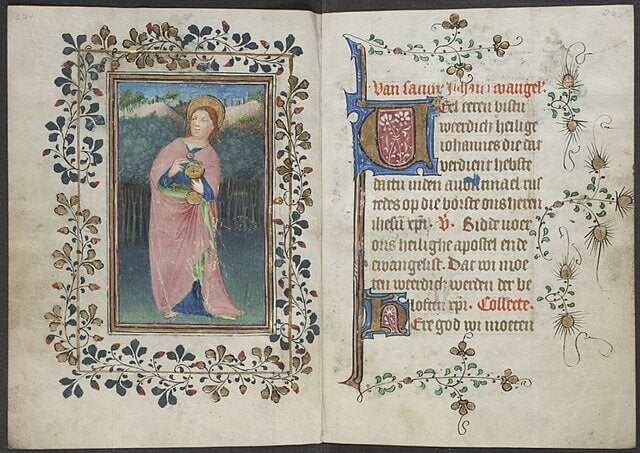 Van sante Johan ewangel'.
Veel eeren bistu
weerdich heilige
iohannes die dat
verdient hebste
dattu inden auontmael rus
tedes op die borste ons heren
ihesu xpi. V. Bidde voer
ons heilighe apostel ende
ewangelist. Dat wi moe
ten weerdich werden der be
loften xpi. Collecte.
Here god wi moeten